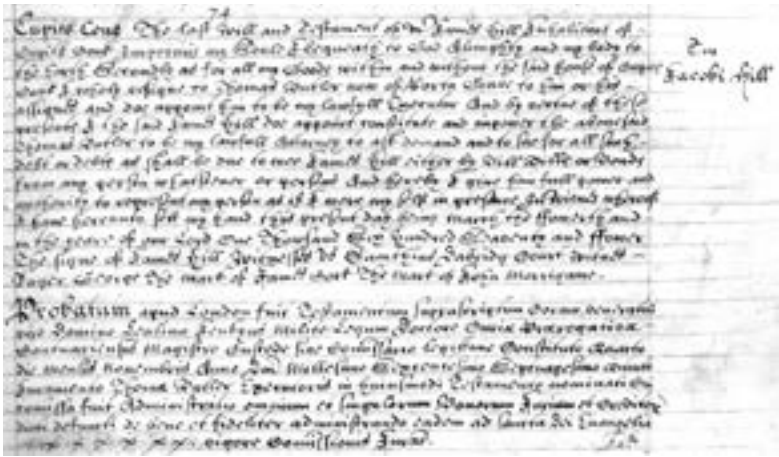 74
Cupids Cove The last will and Testament of me James Hill Inhabitant of
Cupids Cove Imprimis my Soule I bequeath to God Almighty and my body to
the Earth Secondly as for all my Goods within and without the said house of Cupids
Cove I wholy assigne to Thomas Butler now of to him or his
assignes and doe appoint him to be my lawfull Executor And by vertue of these
presents I the said James Hill doe appoint constitute and impower the abovesaid
Thomas Butler to be my lawfull Attorney to ask demand and to sue for all such
debt or debts as shall be due to mee James Hill either by Bill or
from any person whatsoever or persons And hereby I give him full power and
authority to represent my person as if I were my self in presence In witnes whereof
I have hereunto sett my hand this present day being March the and
in the yeare of our Lord One Thousand Six hundred Seaventy and ffower
The signe of James Hill Witnesses
George The mark of James The mark of John
Tm
Jacobi Hill
Probatum apud London fuit Testamentum suprascriptum coram venerabili
viro Domino Leolino Jenkyns Milite Legum Doctore Curiæ Prærogativæ
Cantuariensis Magistro Custode sive Comissario legitime Constituto
die mensis Novembris Anno Dni Millesimo Sexcentesimo Septuagesimo
Juramento Thomæ Butler Executoris in hujusmodi Testamento nominati Cui
comissa fuit Administratio omnium et singulorum bonorum Jurium et Creditorum
dicti defuncti De bene et fideliter administrando eadem ad sancta Dei Evangelia
vigore Comissionis Jurat.